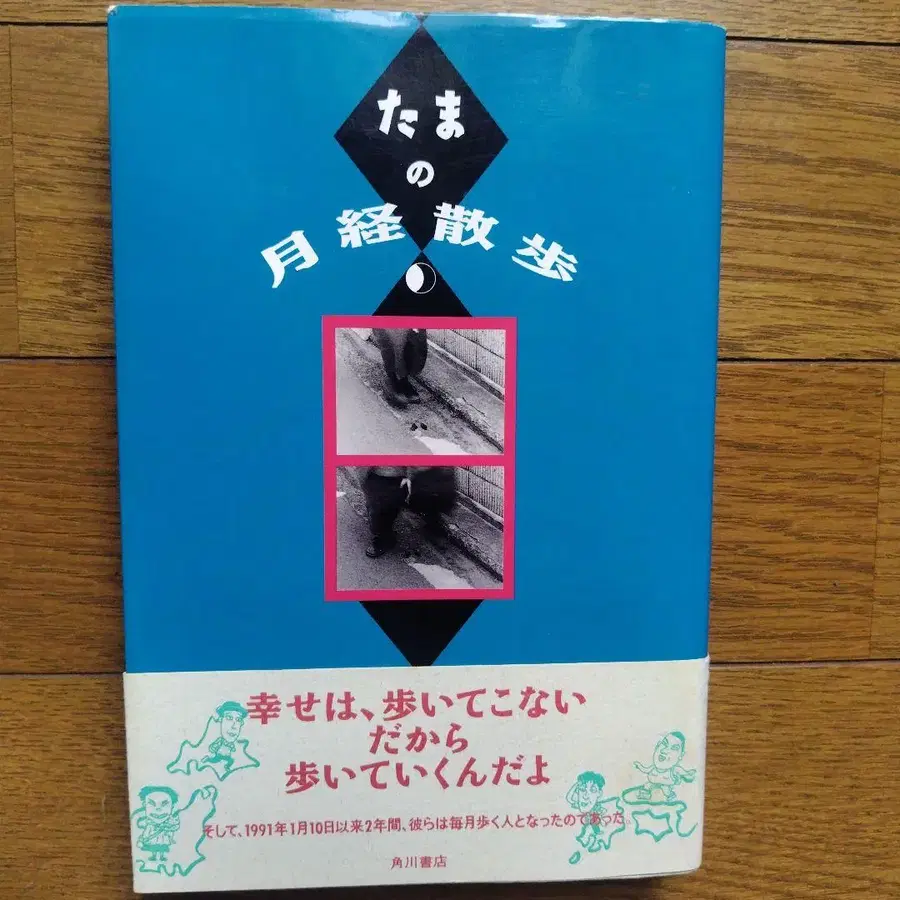 たま
の
月経散歩
幸せは、歩いてこない
だから
歩いていくんだよ
そして、1991年1月10日以来2年間、彼らは毎月歩く人となったのであった。
角川書店